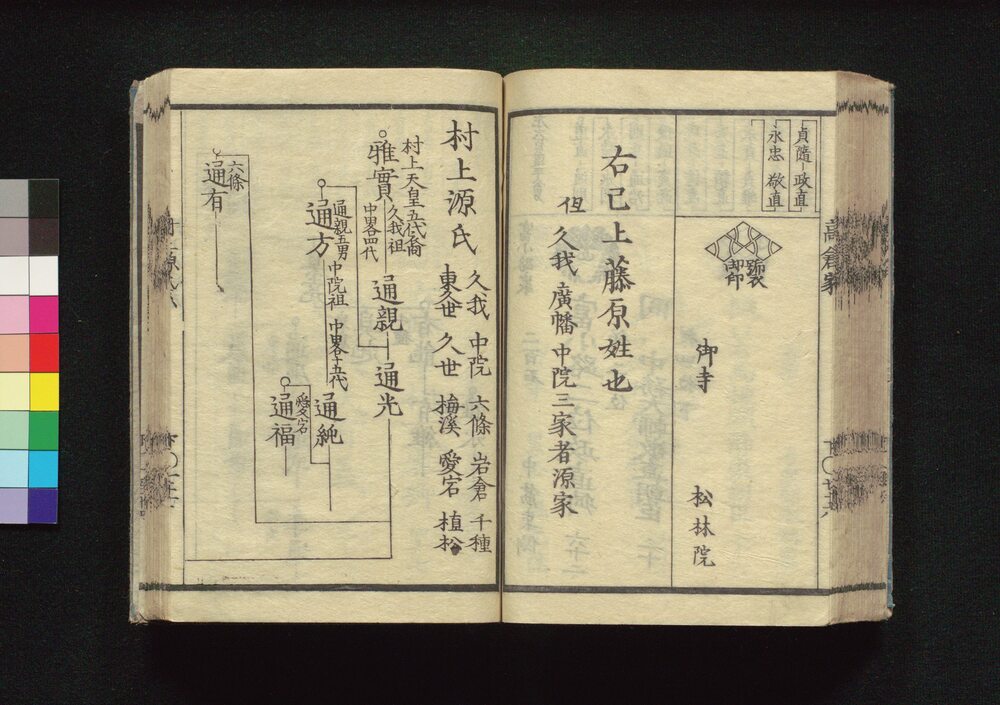 貞隨 政直
永忠 敬直
御印
御寺 松林院
右已上藤原姓也
但 久我 廣幡 中院三家者源家
村上源氏
久我 中院 六條 岩倉 千種
東久世 久世 梅溪 愛宕 植松
村上天皇五代裔
雅實
久我祖
中畧四代
通親 通光
通方
通親五男 中院祖 中畧十五代
通純
愛宕
通福
六條
通有